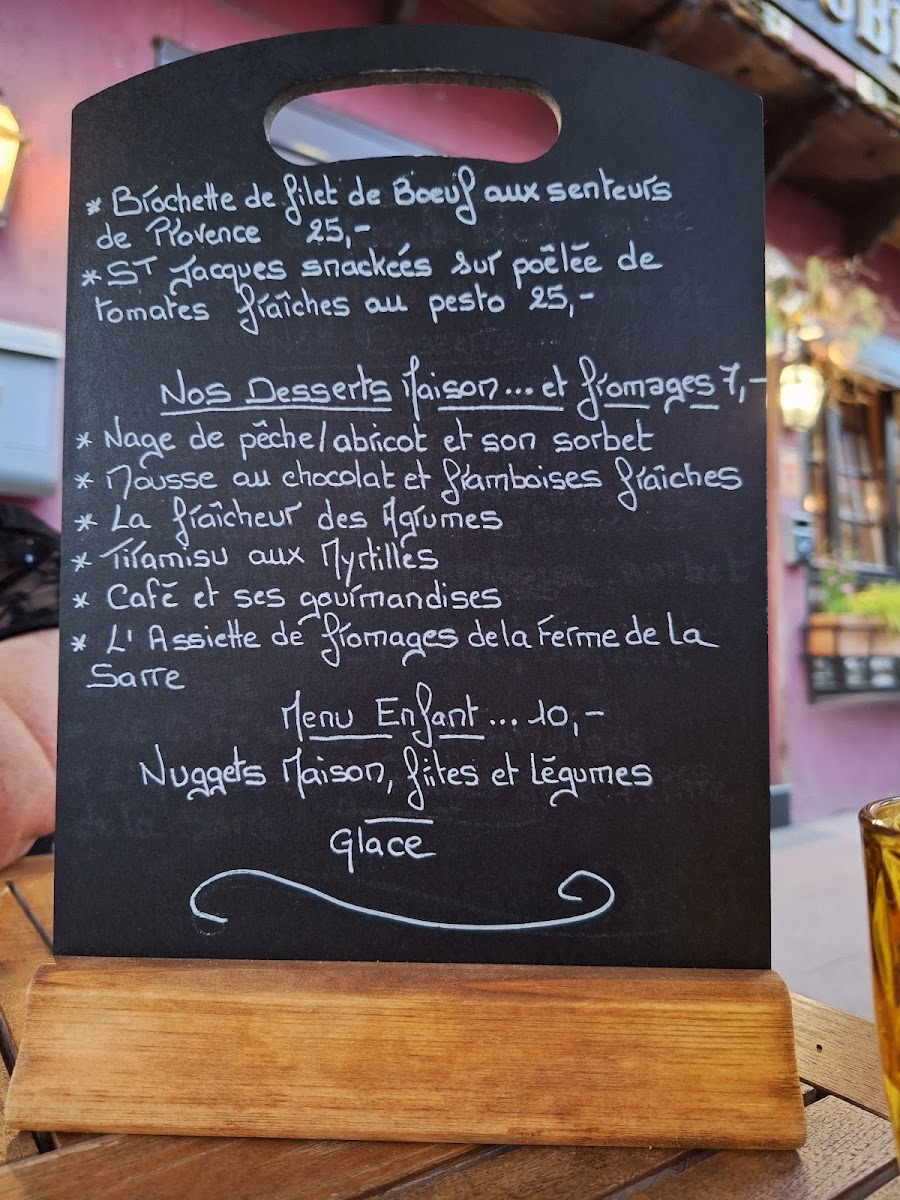 * Brochette de filet de Boeuf aux senteurs
de Provence 25,-
* ST Jacques snackées sur poêlée de
tomates fraîches au pesto 25,-
Nos Desserts Maison... et fromages 7,-
* Nage de pêche/abricot et son sorbet
* Mousse au chocolat et framboises fraîches
* La fraîcheur des Agrumes
* Tiramisu aux Myrtilles
* Café et ses gourmandises
* L'Assiette de fromages de la Ferme de La
Sarre
Menu Enfant... 10,-
Nuggets Maison, frites et Légumes
Glace